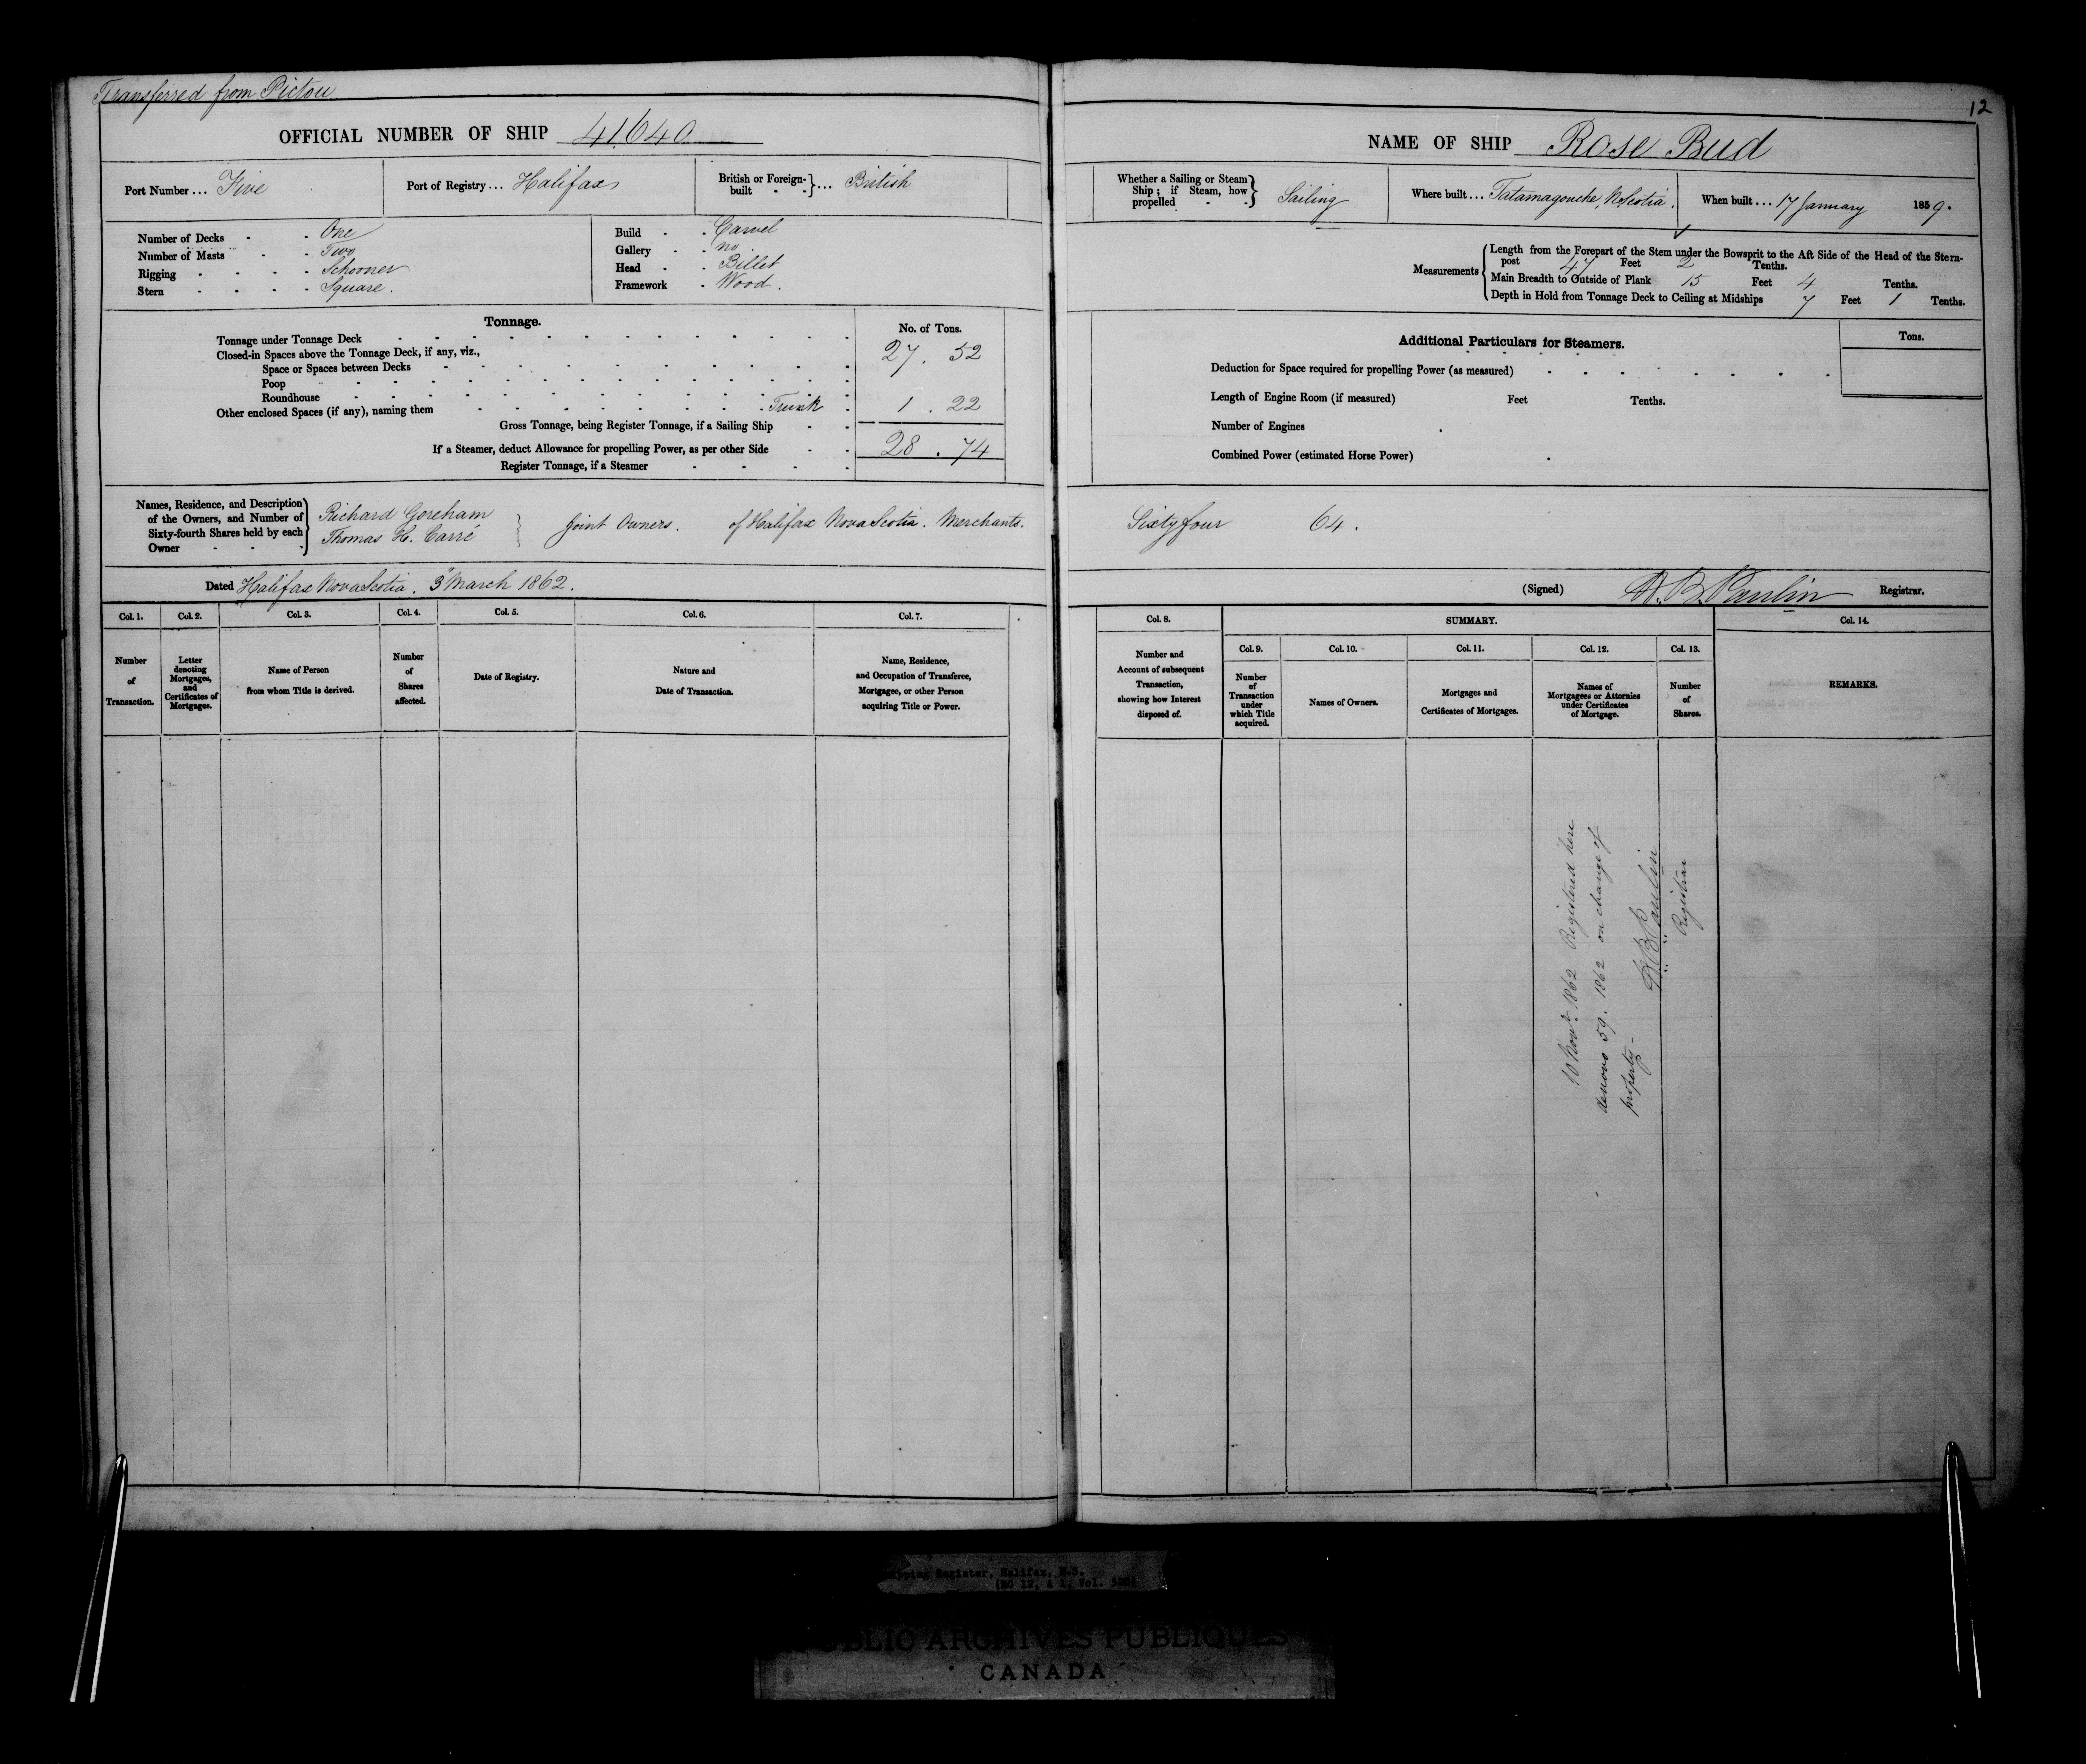 Transferred from Pictou
OFFICIAL NUMBER OF SHIP 41.640
Port Number ... Five
Port of Registry ... Halifax
British or Foreign-built } ... British
Number of Decks - - One
Number of Masts - - Two
Rigging - - - - Schooner
Stern - - - - Square.
Build - - Carvel
Gallery - - no
Head - - Billet
Framework - Wood.
Tonnage.
No. of Tons.
Tonnage under Tonnage Deck 27 . 52
Closed-in Spaces above the Tonnage Deck, if any, viz.,
Space or Spaces between Decks
Poop
Roundhouse
Other enclosed Spaces (if any), naming them Trunk 1 . 22
Gross Tonnage, being Register Tonnage, if a Sailing Ship
28 . 74
If a Steamer, deduct Allowance for propelling Power, as per other Side
Register Tonnage, if a Steamer
Names, Residence, and Description of the Owners, and Number of Sixty-fourth Shares held by each Owner
Richard Goreham
Thomas H. Carré
Joint Owners. of Halifax Nova Scotia. Merchants.
Dated Halifax Nova Scotia. 3" March 1862.
Col. 1.
Number of Transaction.
Col. 2.
Letter denoting Mortgages, and Certificates of Mortgages.
Col. 3.
Name of Person from whom Title is derived.
Col. 4.
Number of Shares affected.
Col. 5.
Date of Registry.
Col. 6.
Nature and Date of Transaction.
Col. 7.
Name, Residence, and Occupation of Transferee, Mortgagee, or other Person acquiring Title or Power.
12
NAME OF SHIP Rose Bud
Whether a Sailing or Steam Ship; if Steam, how propelled - - } Sailing
Where built ... Tatamagouche, N Scotia.
When built ... 17 January 1859.
Measurements
Length from the Forepart of the Stem under the Bowsprit to the Aft Side of the Head of the Stern-
post 47 Feet 2 Tenths.
Main Breadth to Outside of Plank 15 Feet 4 Tenths.
Depth in Hold from Tonnage Deck to Ceiling at Midships 7 Feet 1 Tenths.
Additional Particulars for Steamers.
Tons.
Deduction for Space required for propelling Power (as measured)
Length of Engine Room (if measured) Feet Tenths.
Number of Engines
Combined Power (estimated Horse Power)
Sixty four 64.
(Signed) H. B. Paulin Registrar.
Col. 8.
Number and Account of subsequent Transaction, showing how Interest disposed of.
SUMMARY.
Col. 9.
Number of Transaction under which Title acquired.
Col. 10.
Names of Owners.
Col. 11.
Mortgages and Certificates of Mortgages.
Col. 12.
Names of Mortgagees or Attornies under Certificates of Mortgage.
Col. 13.
Number of Shares.
Col. 14.
REMARKS.
10 Novr. 1862 Registered here
denovo 59. 1862 on change of
property -
H B Paulin
Registrar
pping Register, Halifax, N.S.
(RG 12, A 1, Vol.
PUBLIC ARCHIVES PUBLIQUES
CANADA